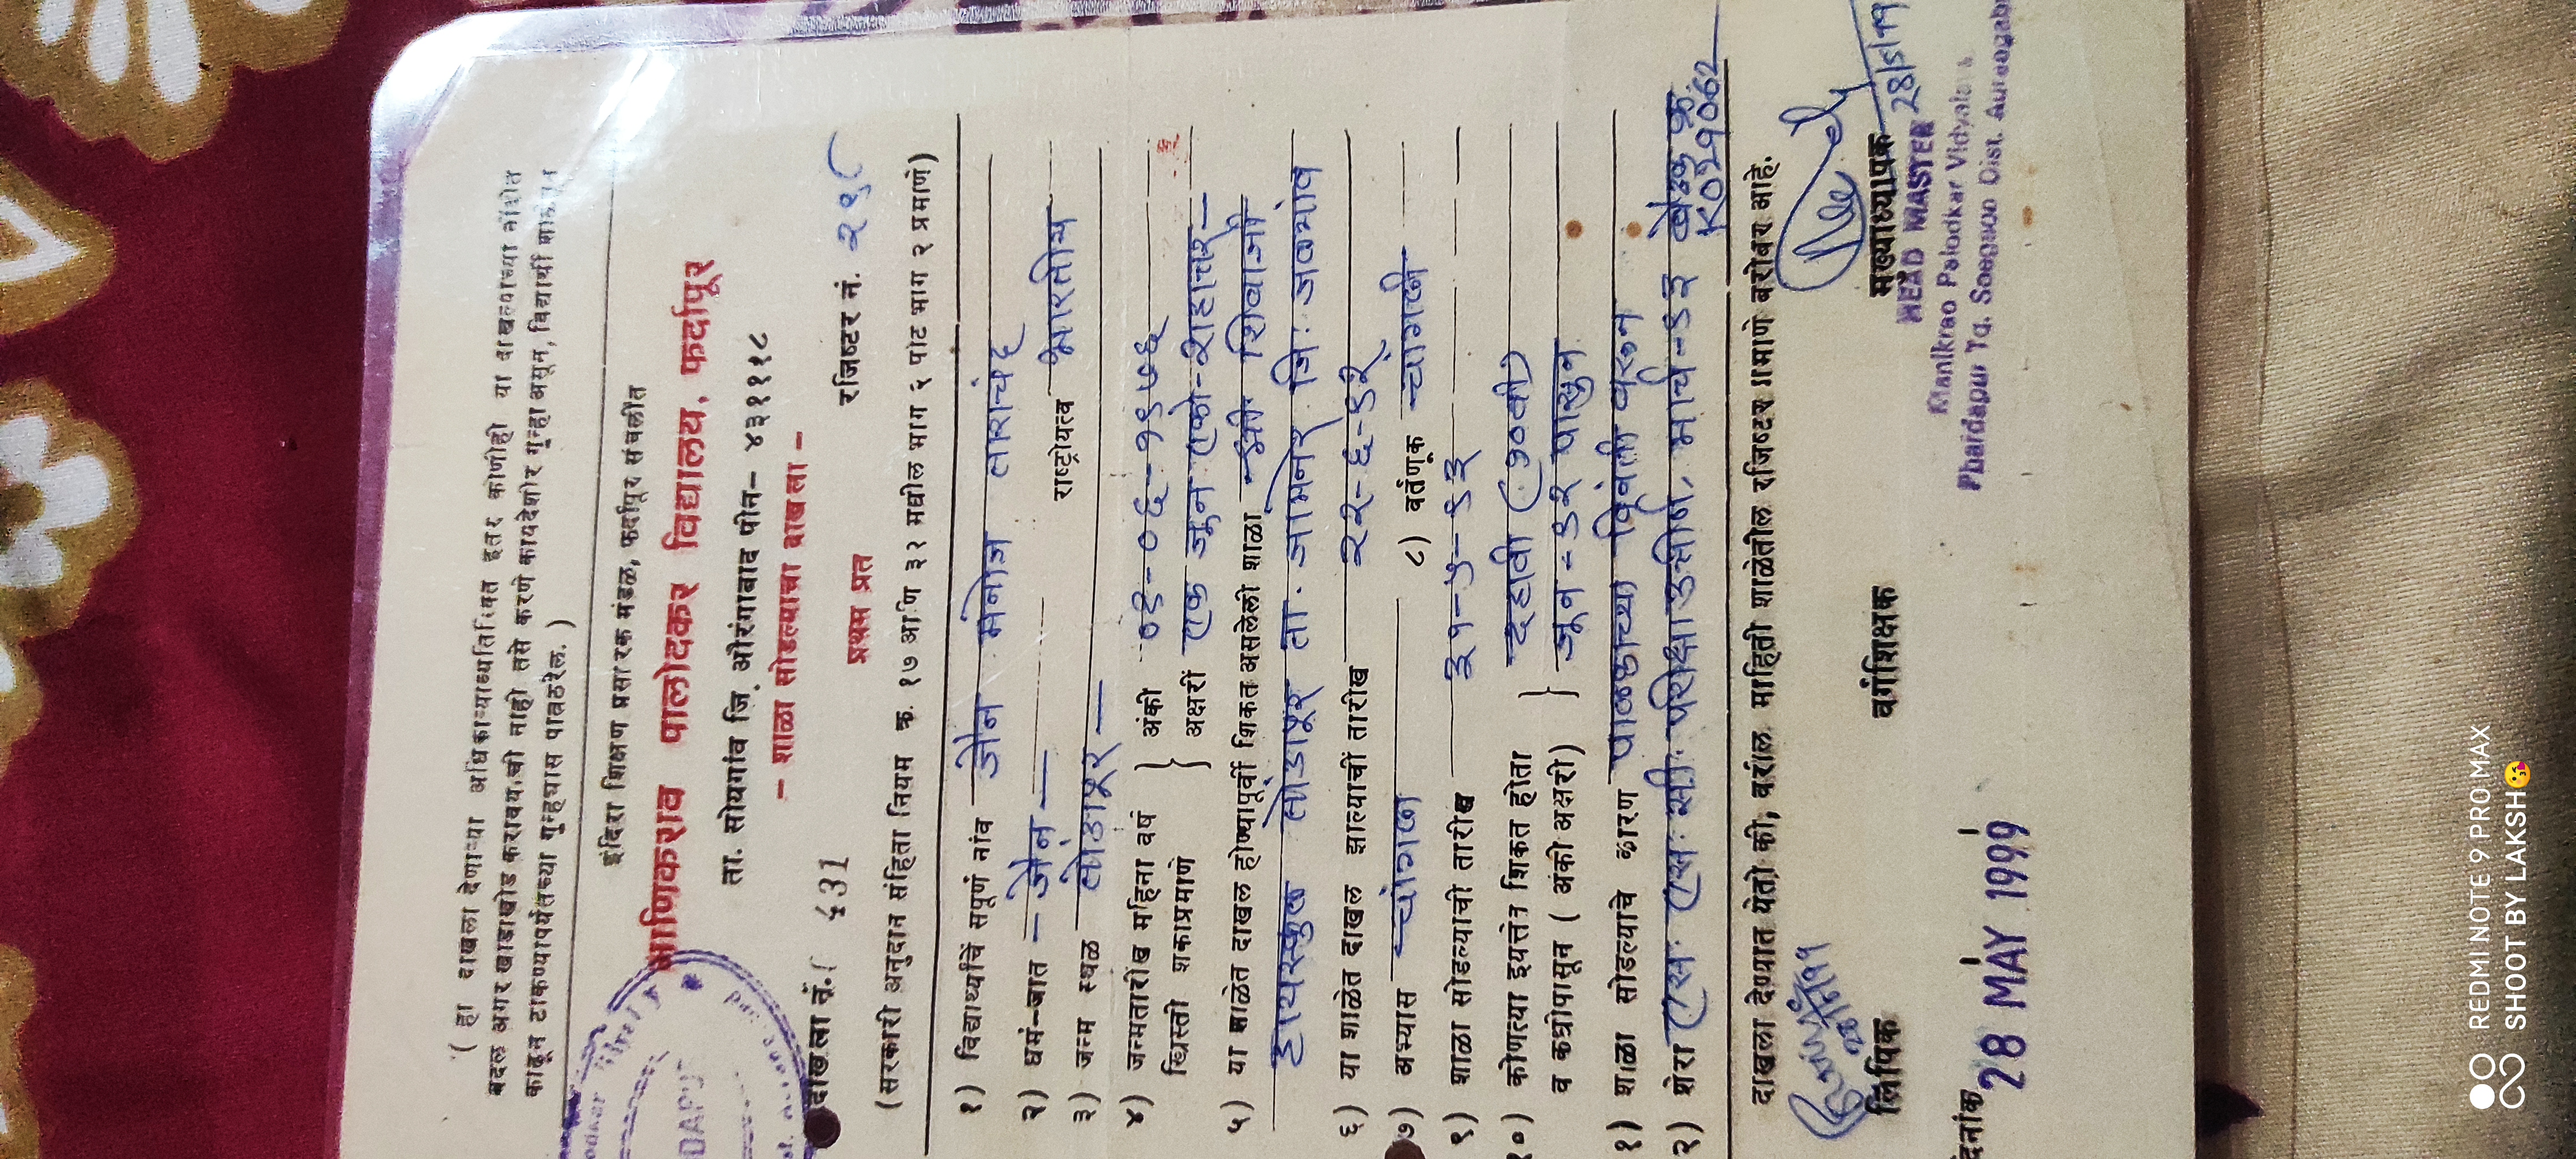 ( हा दाखला देणाऱ्या अधिकाऱ्याव्यतिरिक्त इतर कोणीही या दाखल्याच्या नोंदीत
बदल अगर खाडाखोड करावयाची नाही तसे करणे कायदेशीर गुन्हा असून, विद्यार्थी शाळेतून
काढून टाकण्यापर्यंतच्या गुन्ह्यास पात्र ठरेल. )
इंदिरा शिक्षण प्रसारक मंडळ, फर्दापूर संचलीत
माणिकराव पालोदकर विद्यालय, फर्दापूर
ता. सोयगांव जि. औरंगाबाद पीन- ४३१११८
- शाळा सोडल्याचा दाखला -
प्रथम प्रत
दाखला नं. 431 रजिष्टर नं.
(सरकारी अनुदान संहिता नियम क्र. १७ आणि ३२ मधील भाग ६ पोट भाग २ प्रमाणे)
१) विद्यार्थ्याचें संपूर्ण नांव जैन मनोज ताराचंद
२) धर्म-जात - जैन - राष्ट्रीयत्व भारतीय
३) जन्म स्थळ तोंडापूर -
४) जन्मतारीख महिना वर्ष } अंकी ०१-०६-१९७६
ख्रिस्ती शकाप्रमाणे अक्षरी एक जून एकोणीशे शहात्तर -
५) या शाळेत दाखल होण्यापूर्वी शिकत असलेली शाळा श्री शिवाजी
हायस्कुल तोंडापूर ता. जामनेर जि. जळगांव
६) या शाळेत दाखल झाल्याची तारीख २२-६-९२
७) अभ्यास चांगला ८) वर्तणूक चांगली
९) शाळा सोडल्याची तारीख ३१-५-९३
१०) कोणत्या इयत्तेत शिकत होता } दहावी (१०वी)
व कधीपासून ( अंकी अक्षरी ) जून-९२ पासून
१) शाळा सोडल्याचे कारण पालकाच्या विनंती वरून
२) शेरा एस. एस. सी. परीक्षा उत्तीर्ण. मार्च-९३ बैठक क्र.
K021062
दाखला देण्यात येतो की, वरील माहिती शाळेतील रजिष्टर प्रमाणे बरोबर आहे.
लिपिक वर्गशिक्षक मुख्याध्यापक 28/5/99
HEAD MASTER
Manikrao Palodkar Vidyalaya
Phardapur Tq. Soegaon Dist. Aurangabad
दिनांक 28 MAY 1999
REDMI NOTE 9 PRO MAX
SHOOT BY LAKSH😘